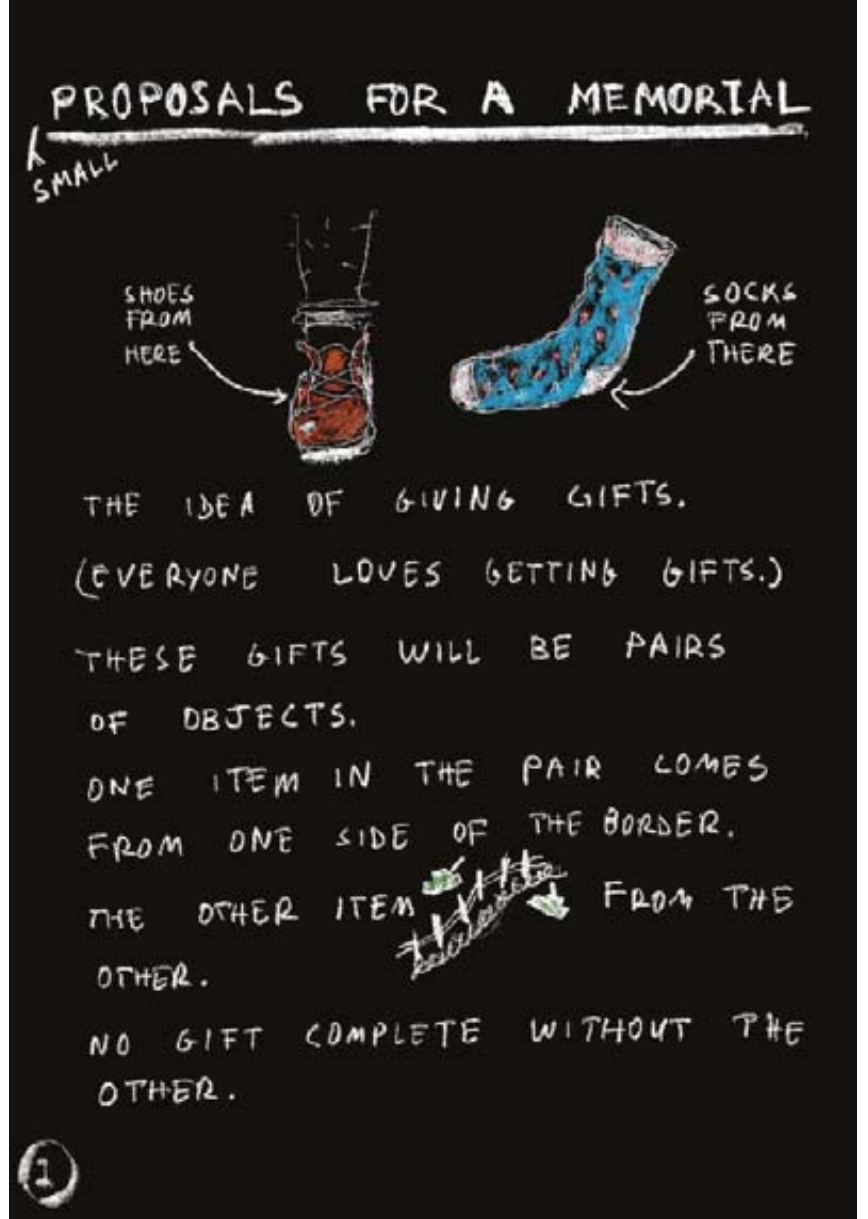 PROPOSALS FOR A MEMORIAL
SMALL
SHOES
FROM
HERE
SOCKS
FROM
THERE
THE IDEA OF GIVING GIFTS.
(EVERYONE LOVES GETTING GIFTS.)
THESE GIFTS WILL BE PAIRS
OF OBJECTS.
ONE ITEM IN THE PAIR COMES
FROM ONE SIDE OF THE BORDER.
THE OTHER ITEM FROM THE
OTHER.
NO GIFT COMPLETE WITHOUT THE
OTHER.
1